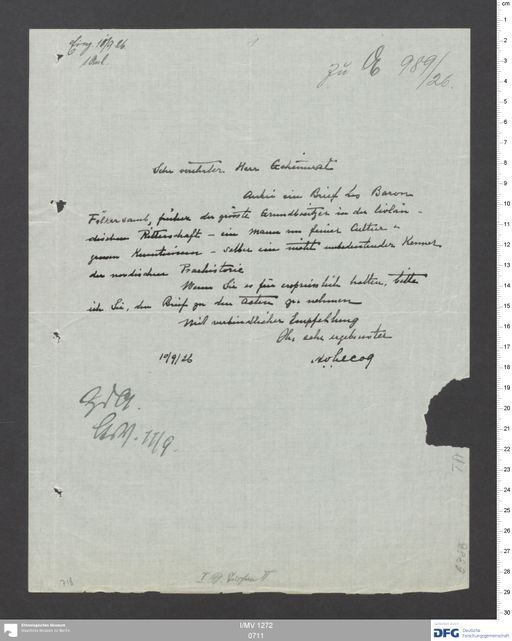 Eing. 10/9 26
1 Anl.
zu E 989/26.
Sehr verehrter Herr Geheimrat
Anbei ein Brief des Baron
Fölkersamb, früher der grösste Grundbesitzer in der livlän-
dischen Ritterschaft - ein Mann von feiner Cultur u
grossen Kenntnissen - selber ein nicht unbedeutender Kenner
der nordischen Praehistorie
Wenn Sie es für erspriesslich halten, bitte
ich Sie, den Brief zu den Acten zu nehmen
Mit verbindlicher Empfehlung
Ihr sehr ergebenster
AvLecoq
10/9/26
ZdA.
11/9.
718
I/MV 1272
0711
Ethnologisches Museum
Staatliche Museen zu Berlin
DFG Deutsche
Forschungsgemeinschaft
cm
1
2
3
4
5
6
7
8
9
10
11
12
13
14
15
16
17
18
19
20
21
22
23
24
25
26
27
28
29
30